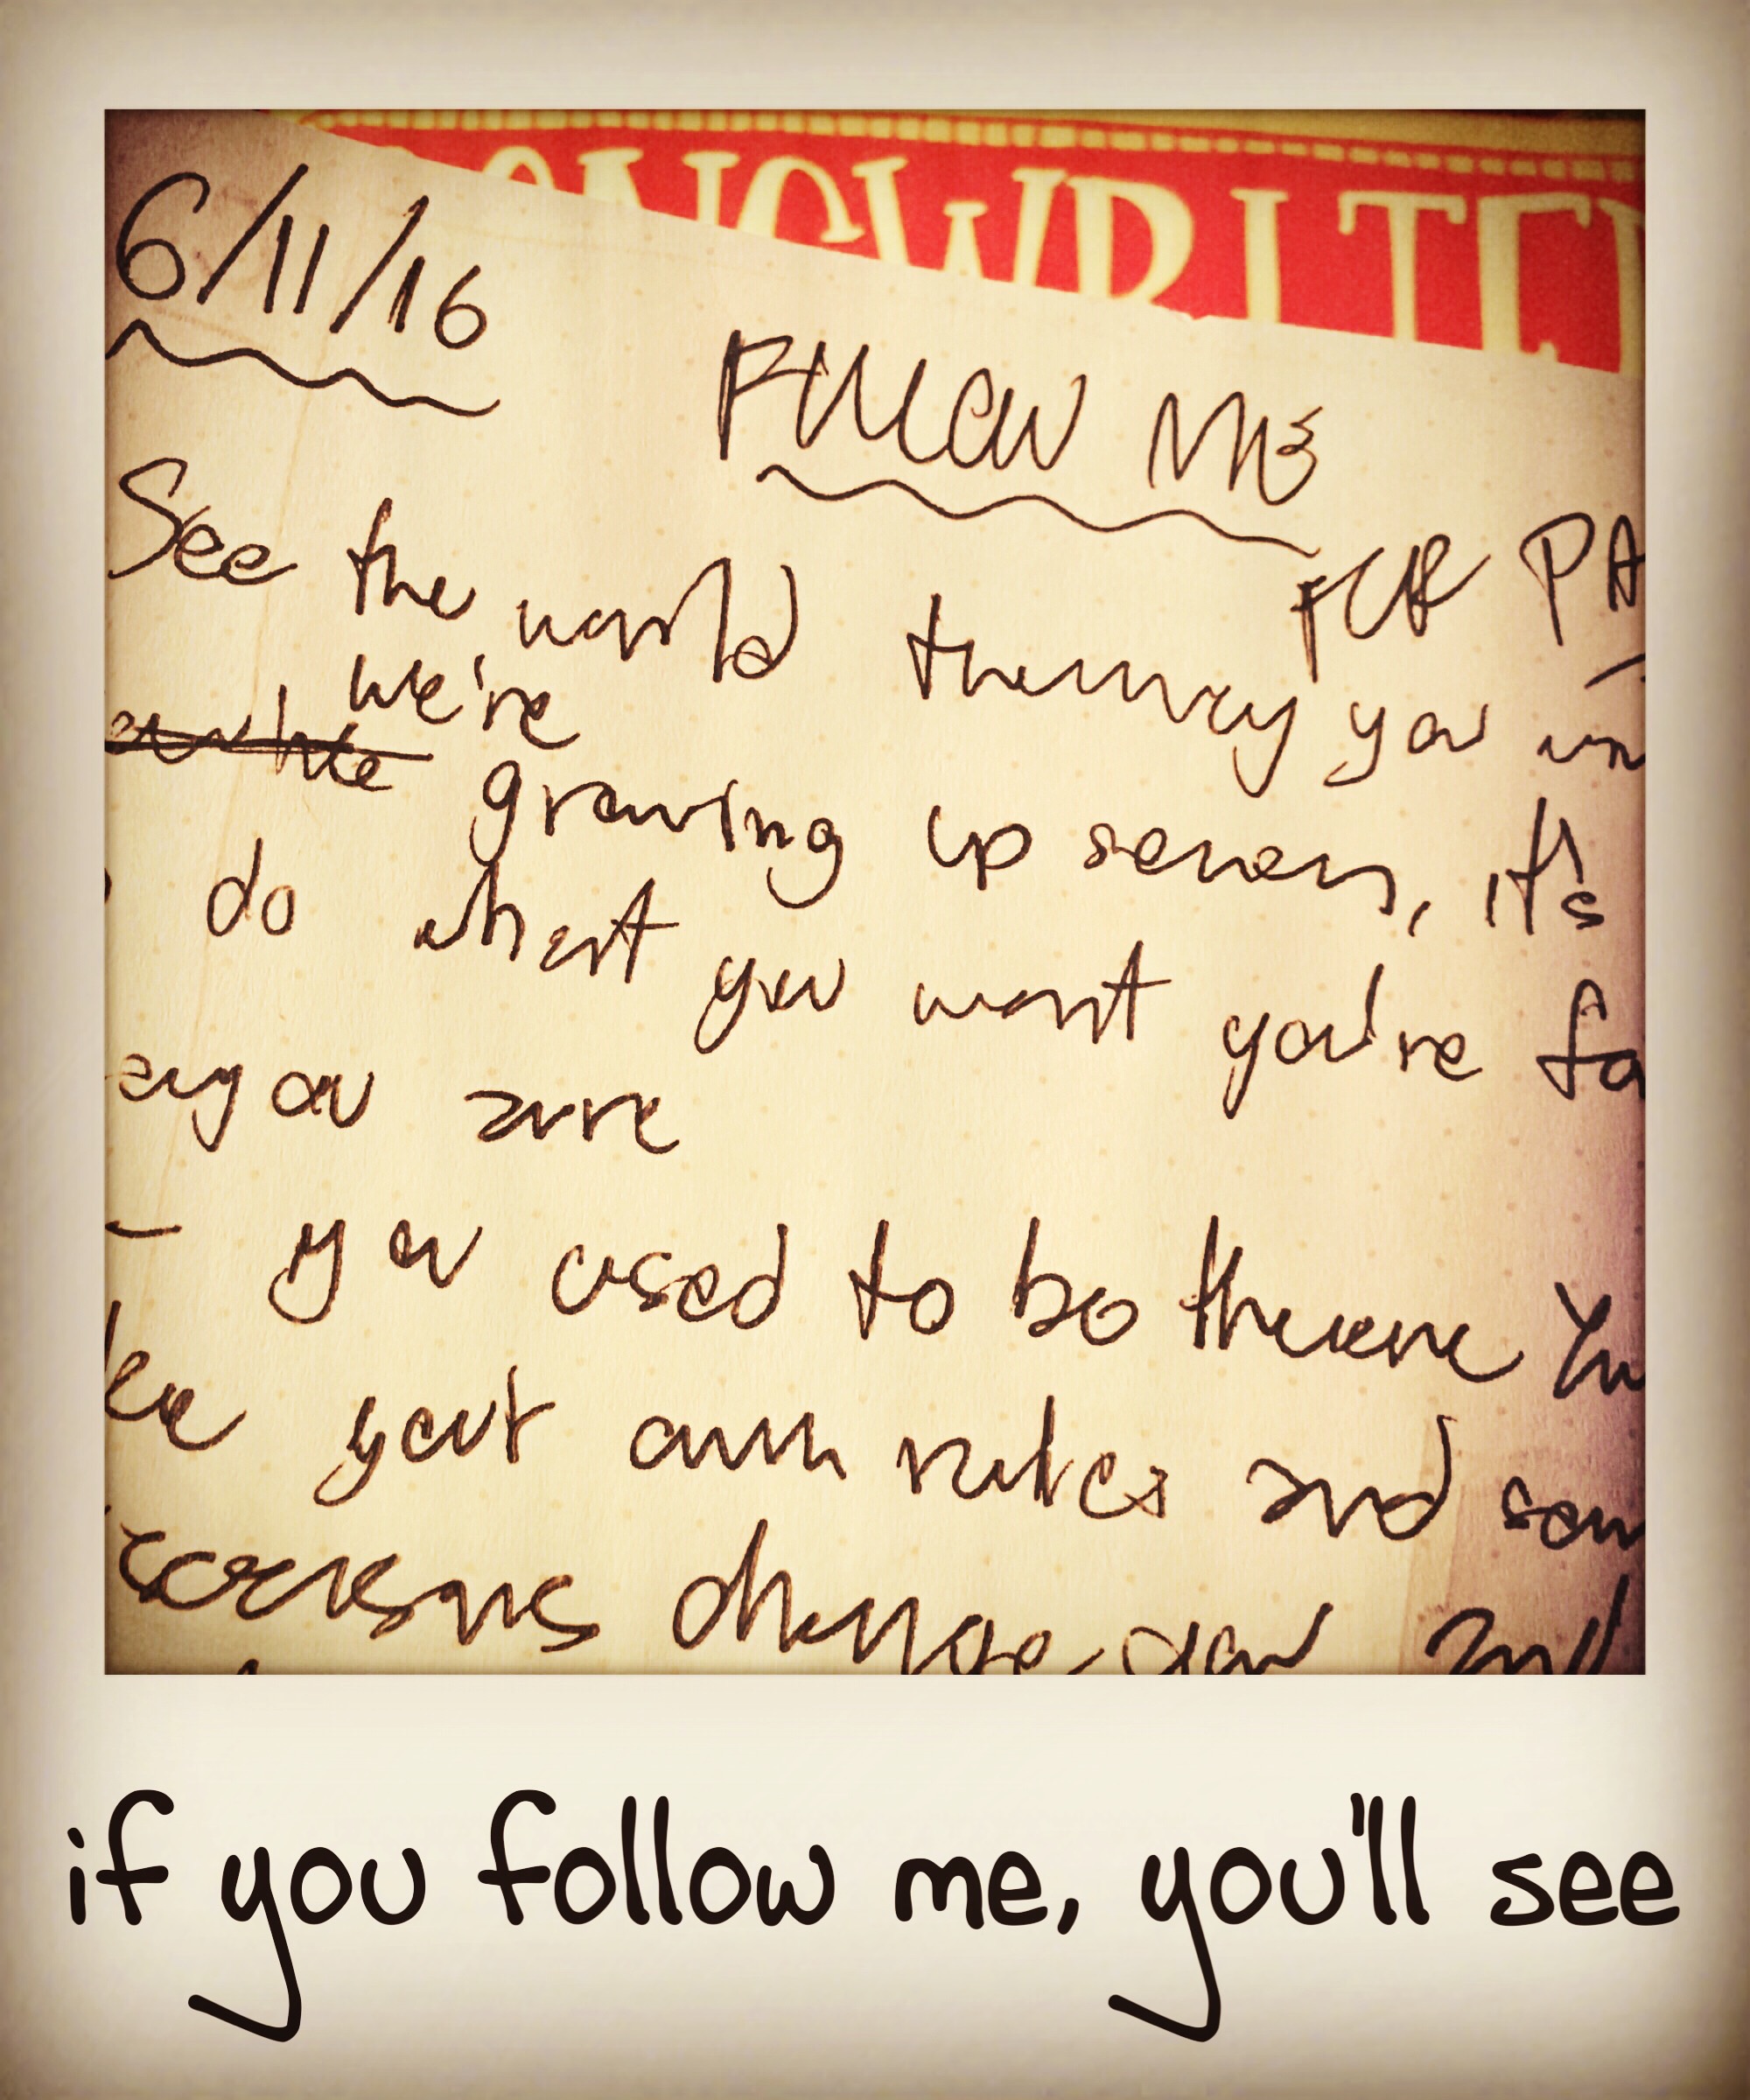 ONGWRITE
6/11/16
FOLLOW ME
FOR PA
See the world the way you
we're
growing up , it's
do what you want you're fa
you are
- you used to be there You
your own rules and som
change you and
if you follow me, you'll see